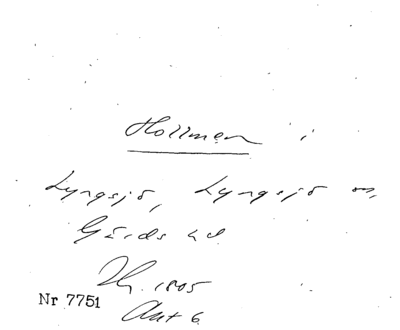 Hollmen i
Lyngsjö, Lyngsjö sn,
Gärds hd
1805
Nr 7751
Akt 6